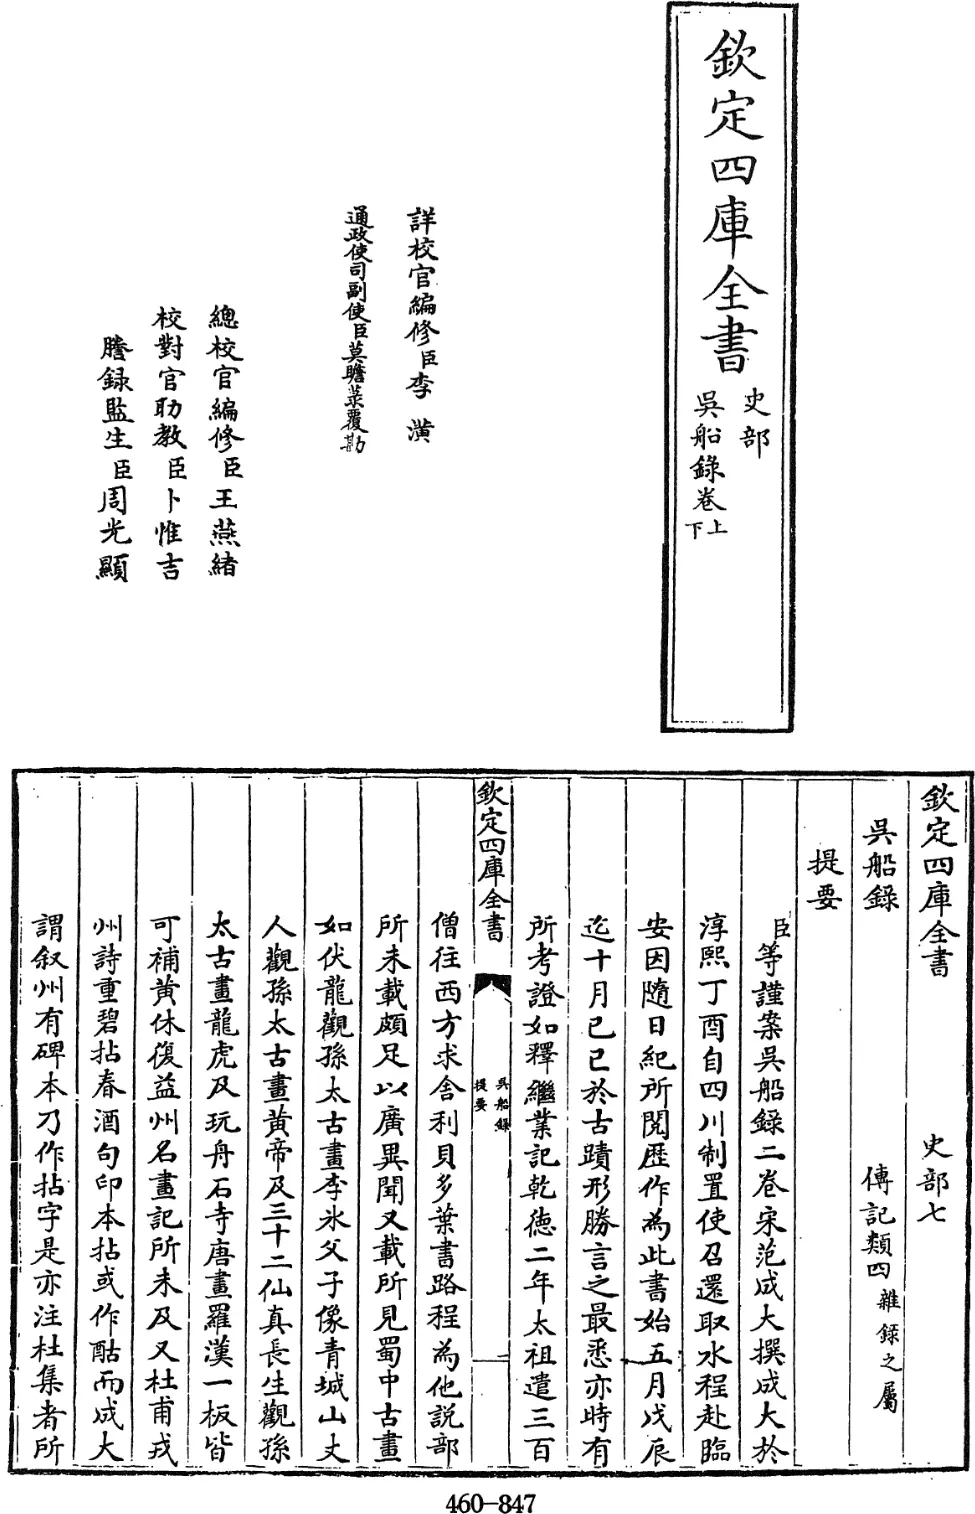 欽定四庫全書
史部
吳船錄卷上下
詳校官編修臣李潢
通政使司副使臣莫瞻菉覆勘
總校官編修臣王燕緒
校對官助教臣卜惟吉
謄録監生臣周光顯
欽定四庫全書 史部七
吳船錄 傳記類四雜錄之屬
提要
臣等謹案吳船録二卷宋范成大撰成大於
淳熙丁酉自四川制置使召還取水程赴臨
安因隨日紀所閲歴作為此書始五月戊辰
迄十月己巳於古蹟形勝言之最悉亦時有
所考證如釋繼業記乾徳二年太祖遣三百
欽定四庫全書
吳船錄
提要
一
僧往西方求舍利貝多葉書路程為他説部
所未載頗足以廣異聞又載所見蜀中古畫
如伏龍觀孫太古畫李氷父子像青城山丈
人觀孫太古畫黄帝及三十二仙真長生觀孫
太古畫龍虎及玩丹石寺唐畫羅漢一板皆
可補黄休復益州名畫記所未及又杜甫戎
州詩重碧拈春酒句印本拈或作酤而成大
謂叙州有碑本乃作拈字是亦注杜集者所
460-847